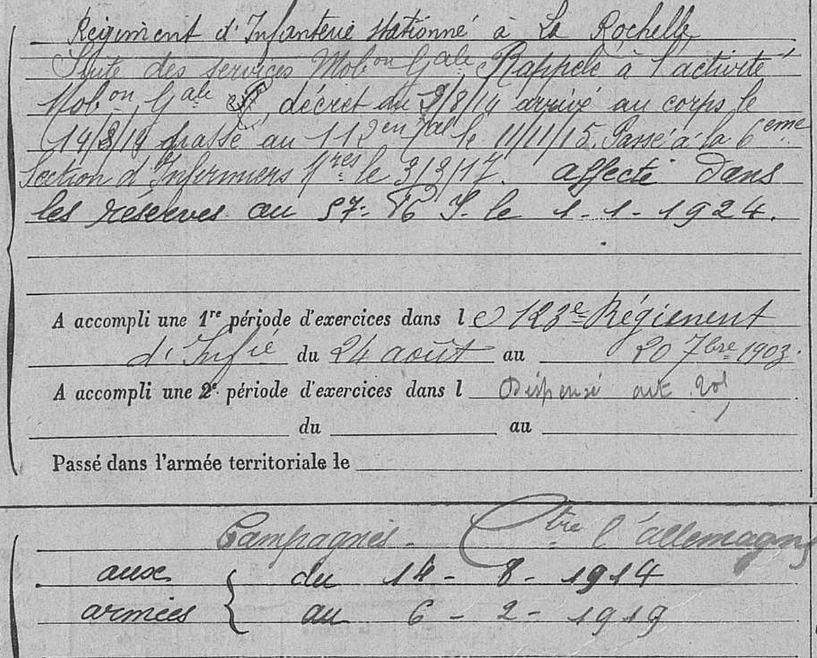 Régiment d'Infanterie stationné à La Rochelle
Suite des services Mob^on G^ale Rappelé à l'activité
Mob^on G^ale décret du 2/8/14 arrivé au corps le
14/8/14 passé au 112^e le 11/11/15. Passé à la 6^eme
Section d'Infirmiers M^res le 3/3/17. affecté dans
les réserves au 57^e R I. le 1-1-1924.
A accompli une 1^re période d'exercices dans le 123^e Régiement
d'Inf^ie du 24 août au 20 7^bre 1903.
A accompli une 2^e période d'exercices dans l Dispensé art.
du au
Passé dans l'armée territoriale le
Campagnes - C^tre l'allemagne
aux { du 14 - 8 - 1914
armées { au 6 - 2 - 1919